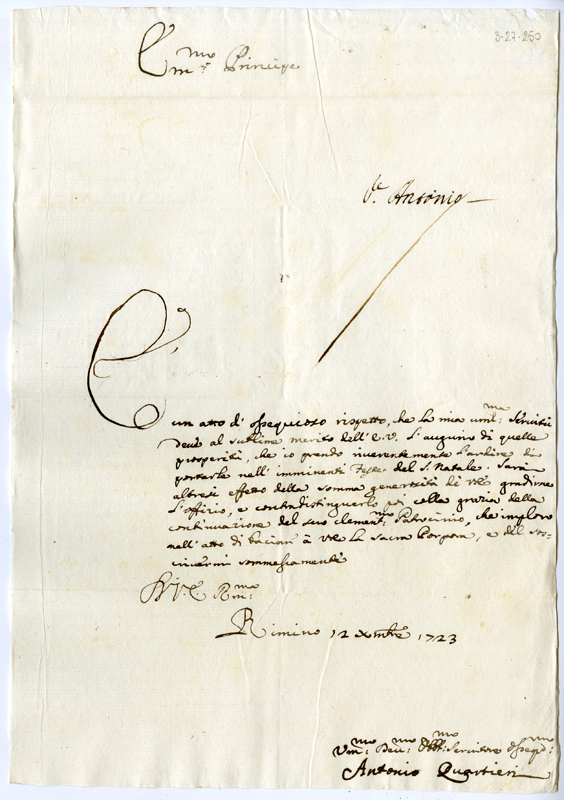 3-27-250
Em:mo Principe
Sr. Antonio
È un atto d'ossequioso rispetto, che la mia uml:ma servitù
deve al sublime merito dell'E.V. l'augurio di quelle
prosperità, che io prendo riverentemente l'ardire di
portarle nell'imminenti Feste del S. Natale. Sarà
altresì effetto della somma generosità di V.E. gradirne
l'offizio, e contradistinguerlo poi colla grazia della
continuazione del suo clement:mo Patrocinio, che imploro
nell'atto di baciare à V.E. la sacra Porpora, e del sos-
crivermi sommessamente
D.V.E. R:ma
Rimino 12 Xmbre 1723
Um:mo Dev:mo Obbl:mo Servitore osseq:mo
Antonio Quartieri